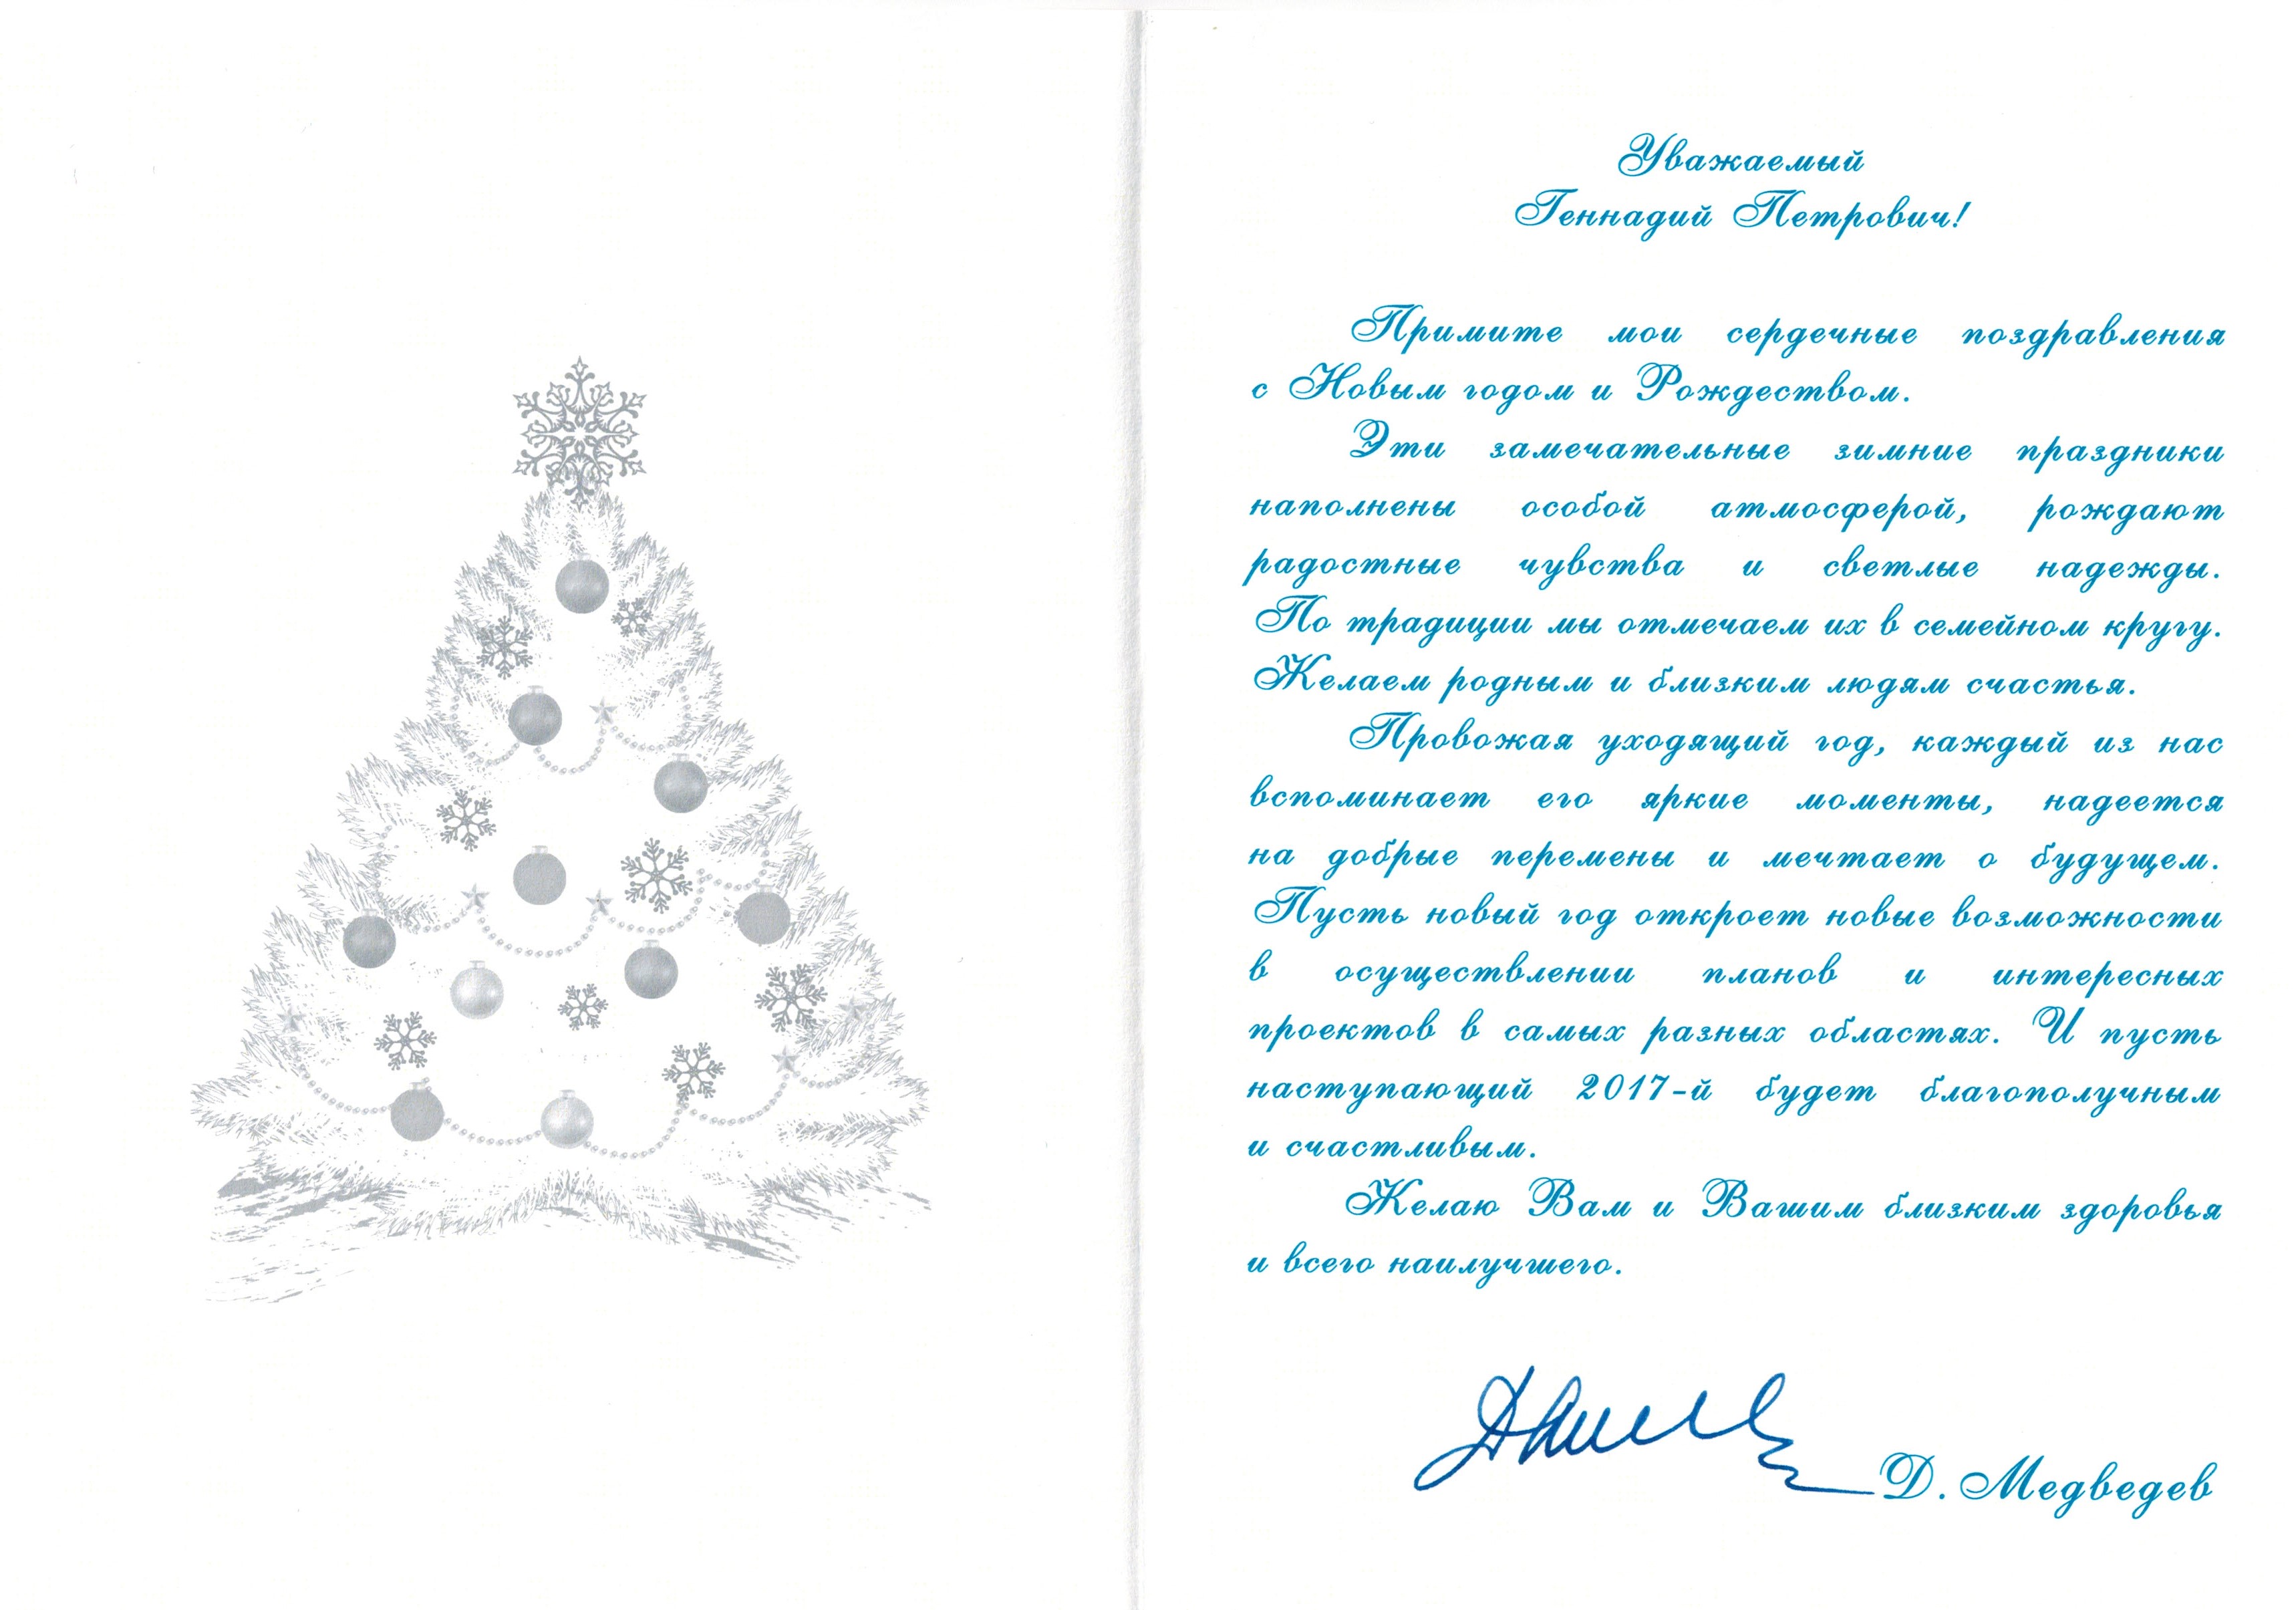 Уважаемый
Геннадий Петрович!
Примите мои сердечные поздравления
с Новым годом и Рождеством.
Эти замечательные зимние праздники
наполнены особой атмосферой, рождают
радостные чувства и светлые надежды.
По традиции мы отмечаем их в семейном кругу.
Желаем родным и близким людям счастья.
Провожая уходящий год, каждый из нас
вспоминает его яркие моменты, надеется
на добрые перемены и мечтает о будущем.
Пусть новый год откроет новые возможности
в осуществлении планов и интересных
проектов в самых разных областях. И пусть
наступающий 2017-й будет благополучным
и счастливым.
Желаю Вам и Вашим близким здоровья
и всего наилучшего.
Д. Медведев